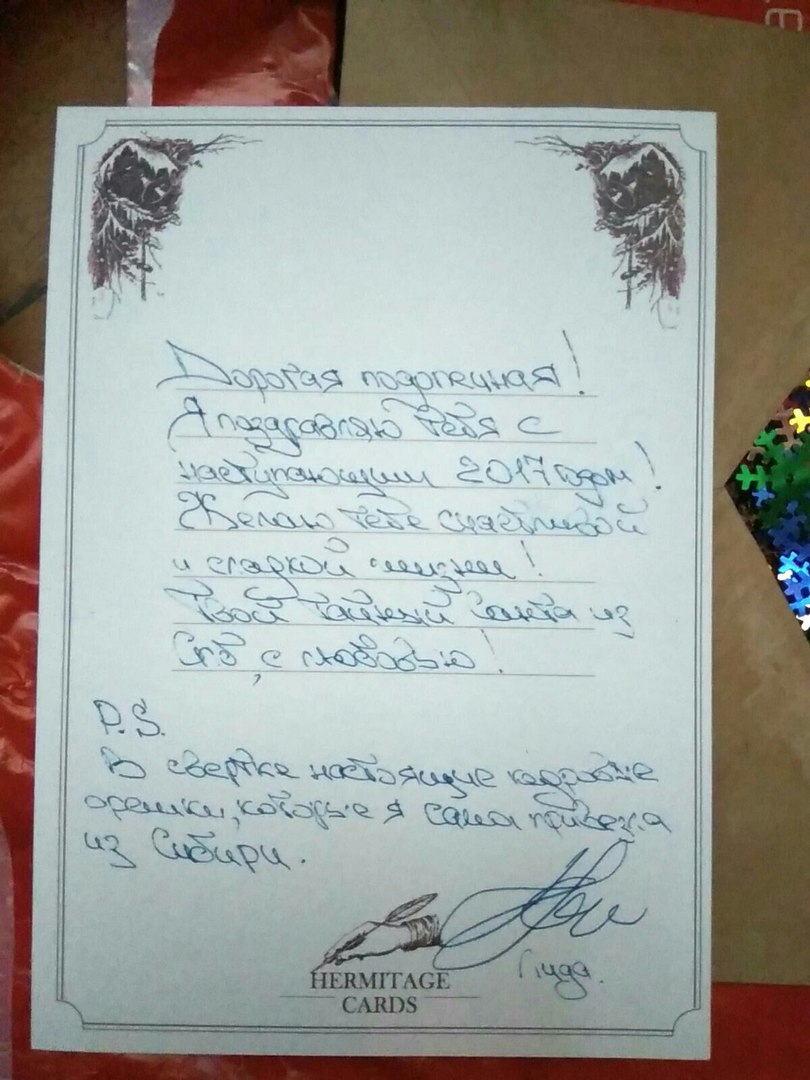 Дорогая подопечная!
Я поздравляю тебя с
наступающим 2017 годом!
Желаю тебе счастливой
и сладкой жизни!
Твой тайный Санта из
Спб, с любовью!
P.S.
В свертке настоящие кедровые
орешки, которые я сама привезла
из Сибири.
Лида.
HERMITAGE
CARDS